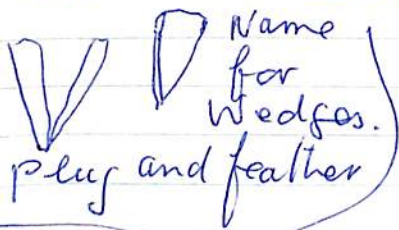 Name
for
Wedges.
plug and feather